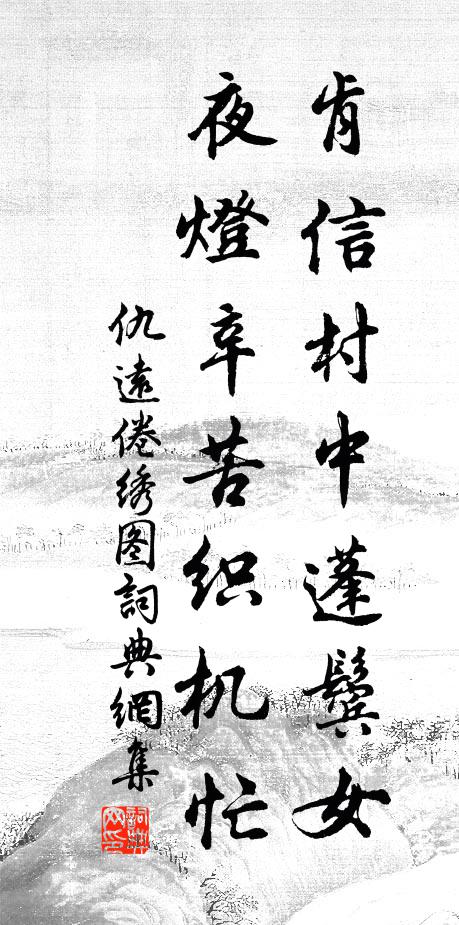 肯信村中蓬鬓女
夜燈辛苦织机忙
仇遠倦绣图詞典網集